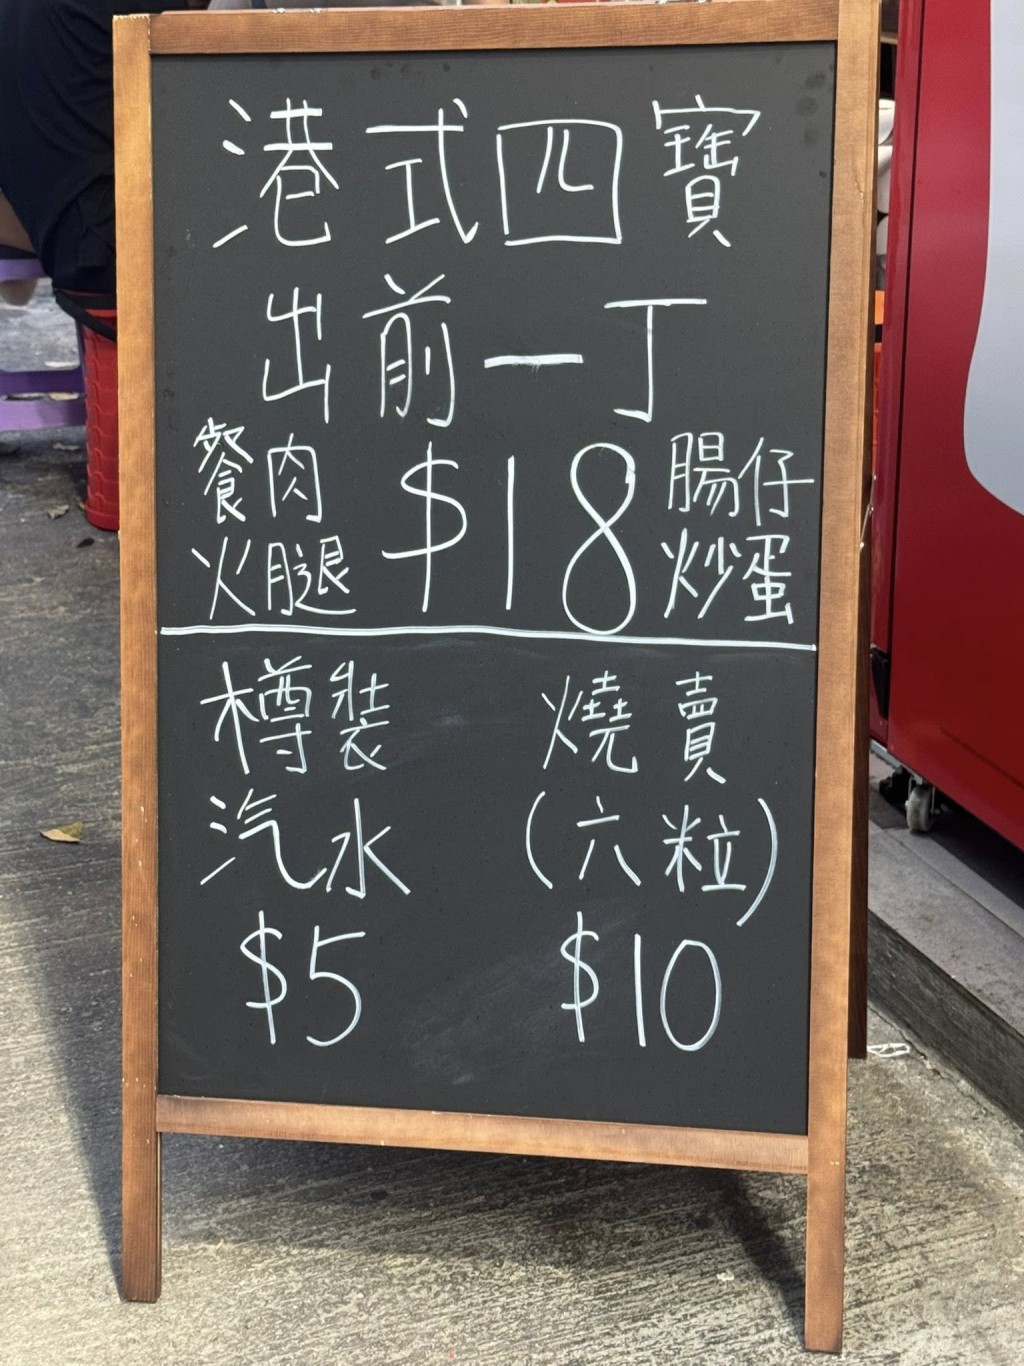 港式四寶
出前一丁
餐肉
火腿
$18
腸仔
炒蛋
樽裝
汽水
$5
燒賣
(六粒)
$10